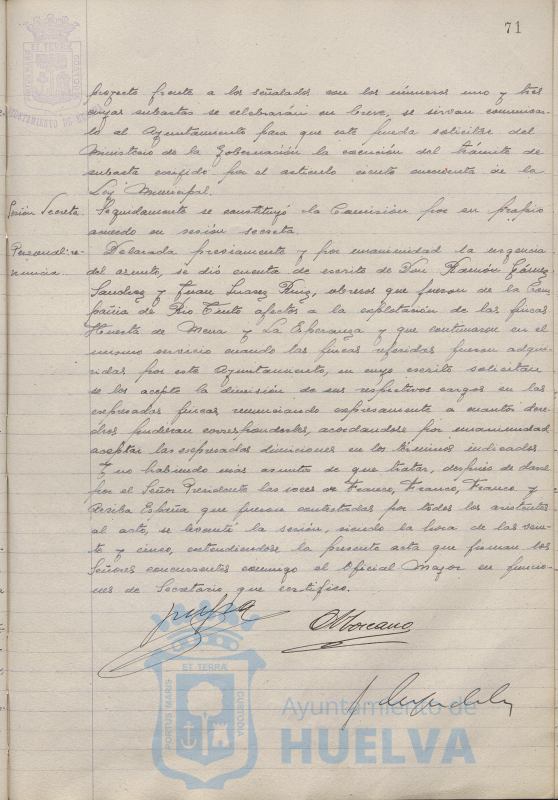 71
proyecto frente a los señalados con los números uno y tres
cuyas subastas se celebrarán en breve, se sirvan comunicar-
lo al Ayuntamiento para que este pueda solicitar del
Ministerio de la Gobernación la exención del trámite de
subasta exigido por el articulo ciento de la
Ley Municipal.
Sesión Secreta. Seguidamente se constituyó la Comisión por su propio
acuerdo en sesión secreta.
Personal: re-
nuncia.
Declarada previamente y por unanimidad la urgencia
del asunto, se dió cuenta de escrito de Don Ramón Gómez
Sanchez y Juan Suarez Ruiz, obreros que fueron de la Com
pañia de Rio Tinto afectos a la explotación de las fincas
Huerta de Mena y La Esperanza y que continuaron en el
mismo servicio cuando las fincas referidas fueron adqui-
ridas por este Ayuntamiento, en cuyo escrito solicitan
se les acepte la dimisión de sus respectivos cargos en las
expresadas fincas renunciando expresamente a cuantos dere
chos pudieran corresponderles, acordandose por unanimidad
aceptar las expresadas dimisiones en los términos indicados
Y no habiendo más asuntos de que tratar, después de darse
por el Señor Presidente las voces de Franco, Franco, Franco y
Arriba España que fueron contestadas por todos los asistentes
al acto, se levantó la sesión, siendo la hora de las vein-
te y cinco, extendiendose la presente acta que firman los
Señores concurrentes conmigo el Oficial Mayor en funcio-
nes de Secretario que certifico.
ET TERRA
PORTUS MARIS
CUSTODIA
Ayuntamiento de
HUELVA